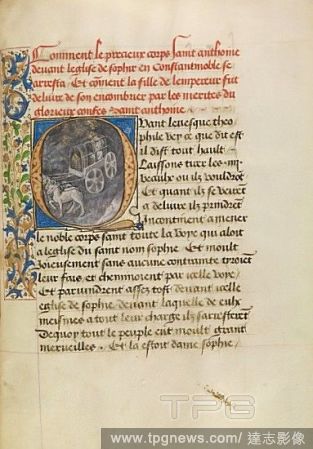 Comment le precieux corps saint anthoine
devant leglise de sophie en Constantinoble se
arresta. Et coment la fille de lempereur fut
delivre de son encombrier par les merites du
glorieux confes saint anthoine
Quant levesque theo
phile vey ce que dit est
il dist tout hault
Laissons tirer les
veaulx ou ilz vouldrōt
Et quant ilz se veirēt
a delivre ilz prindrēt
Incontinent a mener
le noble corps saint toute la voye qui aloit
a leglise du saint nom sophie. Et moult
ioieusement sans aucune contrainte tiroiēt
leur fais et cheminoient par icelle voye/
Et parvindrent assez tost devant icelle
eglise de sophie devant laquelle de eulx
meismes a tout leur charge ilz saresterēt
Dequoy tout le peuple eut moult grant
merveilles. Et la estoit dame sophie/
TPG
www.tpgnews.com/ 達志影像